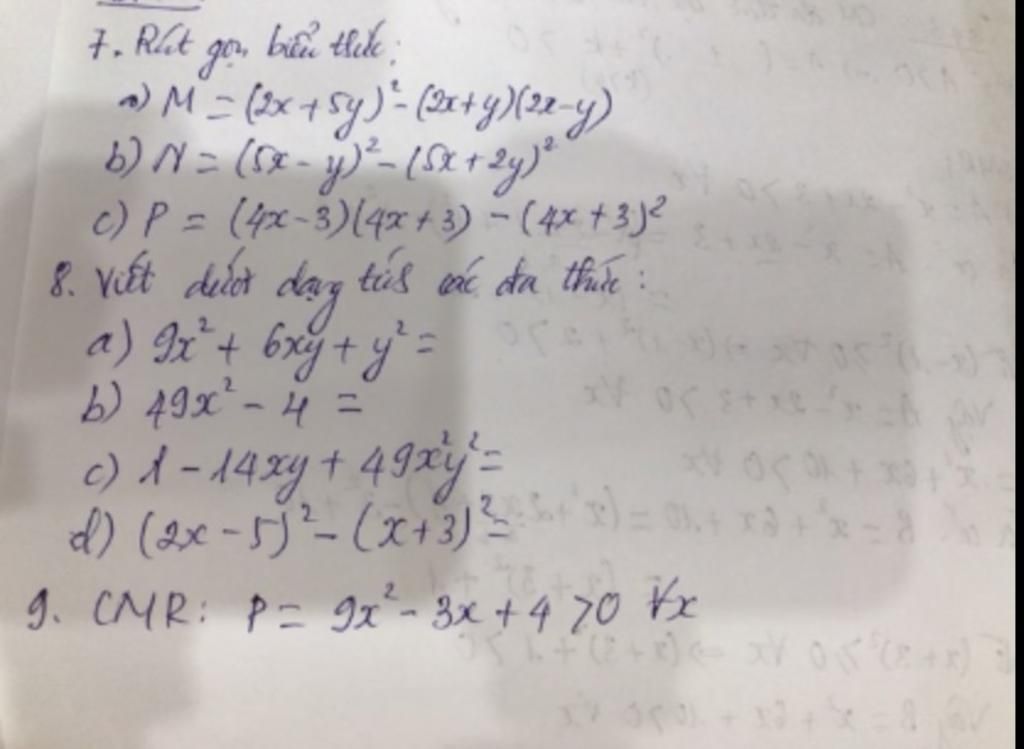 7. Rút gọn biểu thức:
a) M = (2x + 5y)² - (2x + y)(2x - y)
b) N = (5x - y)² - (5x + 2y)²
c) P = (4x - 3)(4x + 3) - (4x + 3)²
8. Viết dưới dạng tích các đa thức:
a) 9x² + 6xy + y² =
b) 49x² - 4 =
c) 1 - 14xy + 49x²y² =
d) (2x - 5)² - (x + 3)² =
9. CMR: P = 9x² - 3x + 4 > 0 ∀x